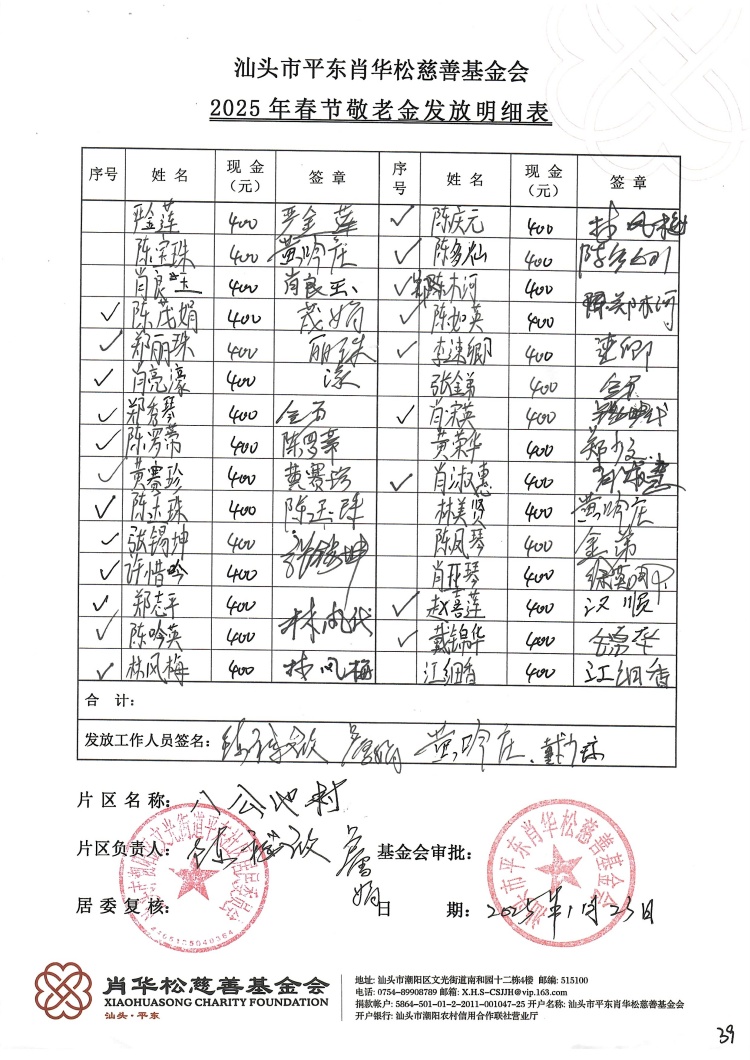 汕头市平东肖华松慈善基金会
2025年春节敬老金发放明细表
序号 姓名 现金（元） 签章 序号 姓名 现金（元） 签章
严金莲 400 严金莲 ✓ 陈庆元 400 林凤梅
陈宝珠 400 黄吟庄 ✓ 陈多灿 400
肖良玉 400 肖良玉 ✓ 郑陈木河 400 郑木河
✓ 陈茂娟 400 茂娟 ✓ 陈如英 400
✓ 郑丽珠 400 丽珠 ✓ 李速卿 400 速卿
✓ 肖亮濠 400 濠 张金弟 400
✓ 郑秀琴 400 ✓ 肖宋英 400
✓ 陈罗蒂 400 陈罗蒂 黄荣华 400
✓ 黄赛珍 400 黄赛珍 ✓ 肖淑惠 400 肖淑惠
✓ 陈玉珠 400 陈玉珠 林美贤 400 黄吟庄
✓ 张锡坤 400 张锡坤 陈凤琴 400 金弟
✓ 许惜吟 400 肖花琴 400
✓ 郑志平 400 ✓ 赵喜莲 400 汉顺
✓ 陈吟英 400 ✓ 戴锦华 400
✓ 林风梅 400 林风梅 江细香 400 江细香
合 计：
发放工作人员签名： 黄吟庄、
片区名称：八公地村
片区负责人： 基金会审批：
居委复核： 日 期：2025年1月23日
汕头市平东肖华松慈善基金会
肖华松慈善基金会
XIAOHUASONG CHARITY FOUNDATION
汕头·平东
地址: 汕头市潮阳区文光街道南和园十二栋4楼 邮编: 515100
电话: 0754-89908789 邮箱: X.H.S-CSJJH@vip.163.com
捐款帐户: 5864-501-01-2-2011-001047-25 开户名称: 汕头市平东肖华松慈善基金会
开户银行: 汕头市潮阳农村信用合作联社营业厅
39